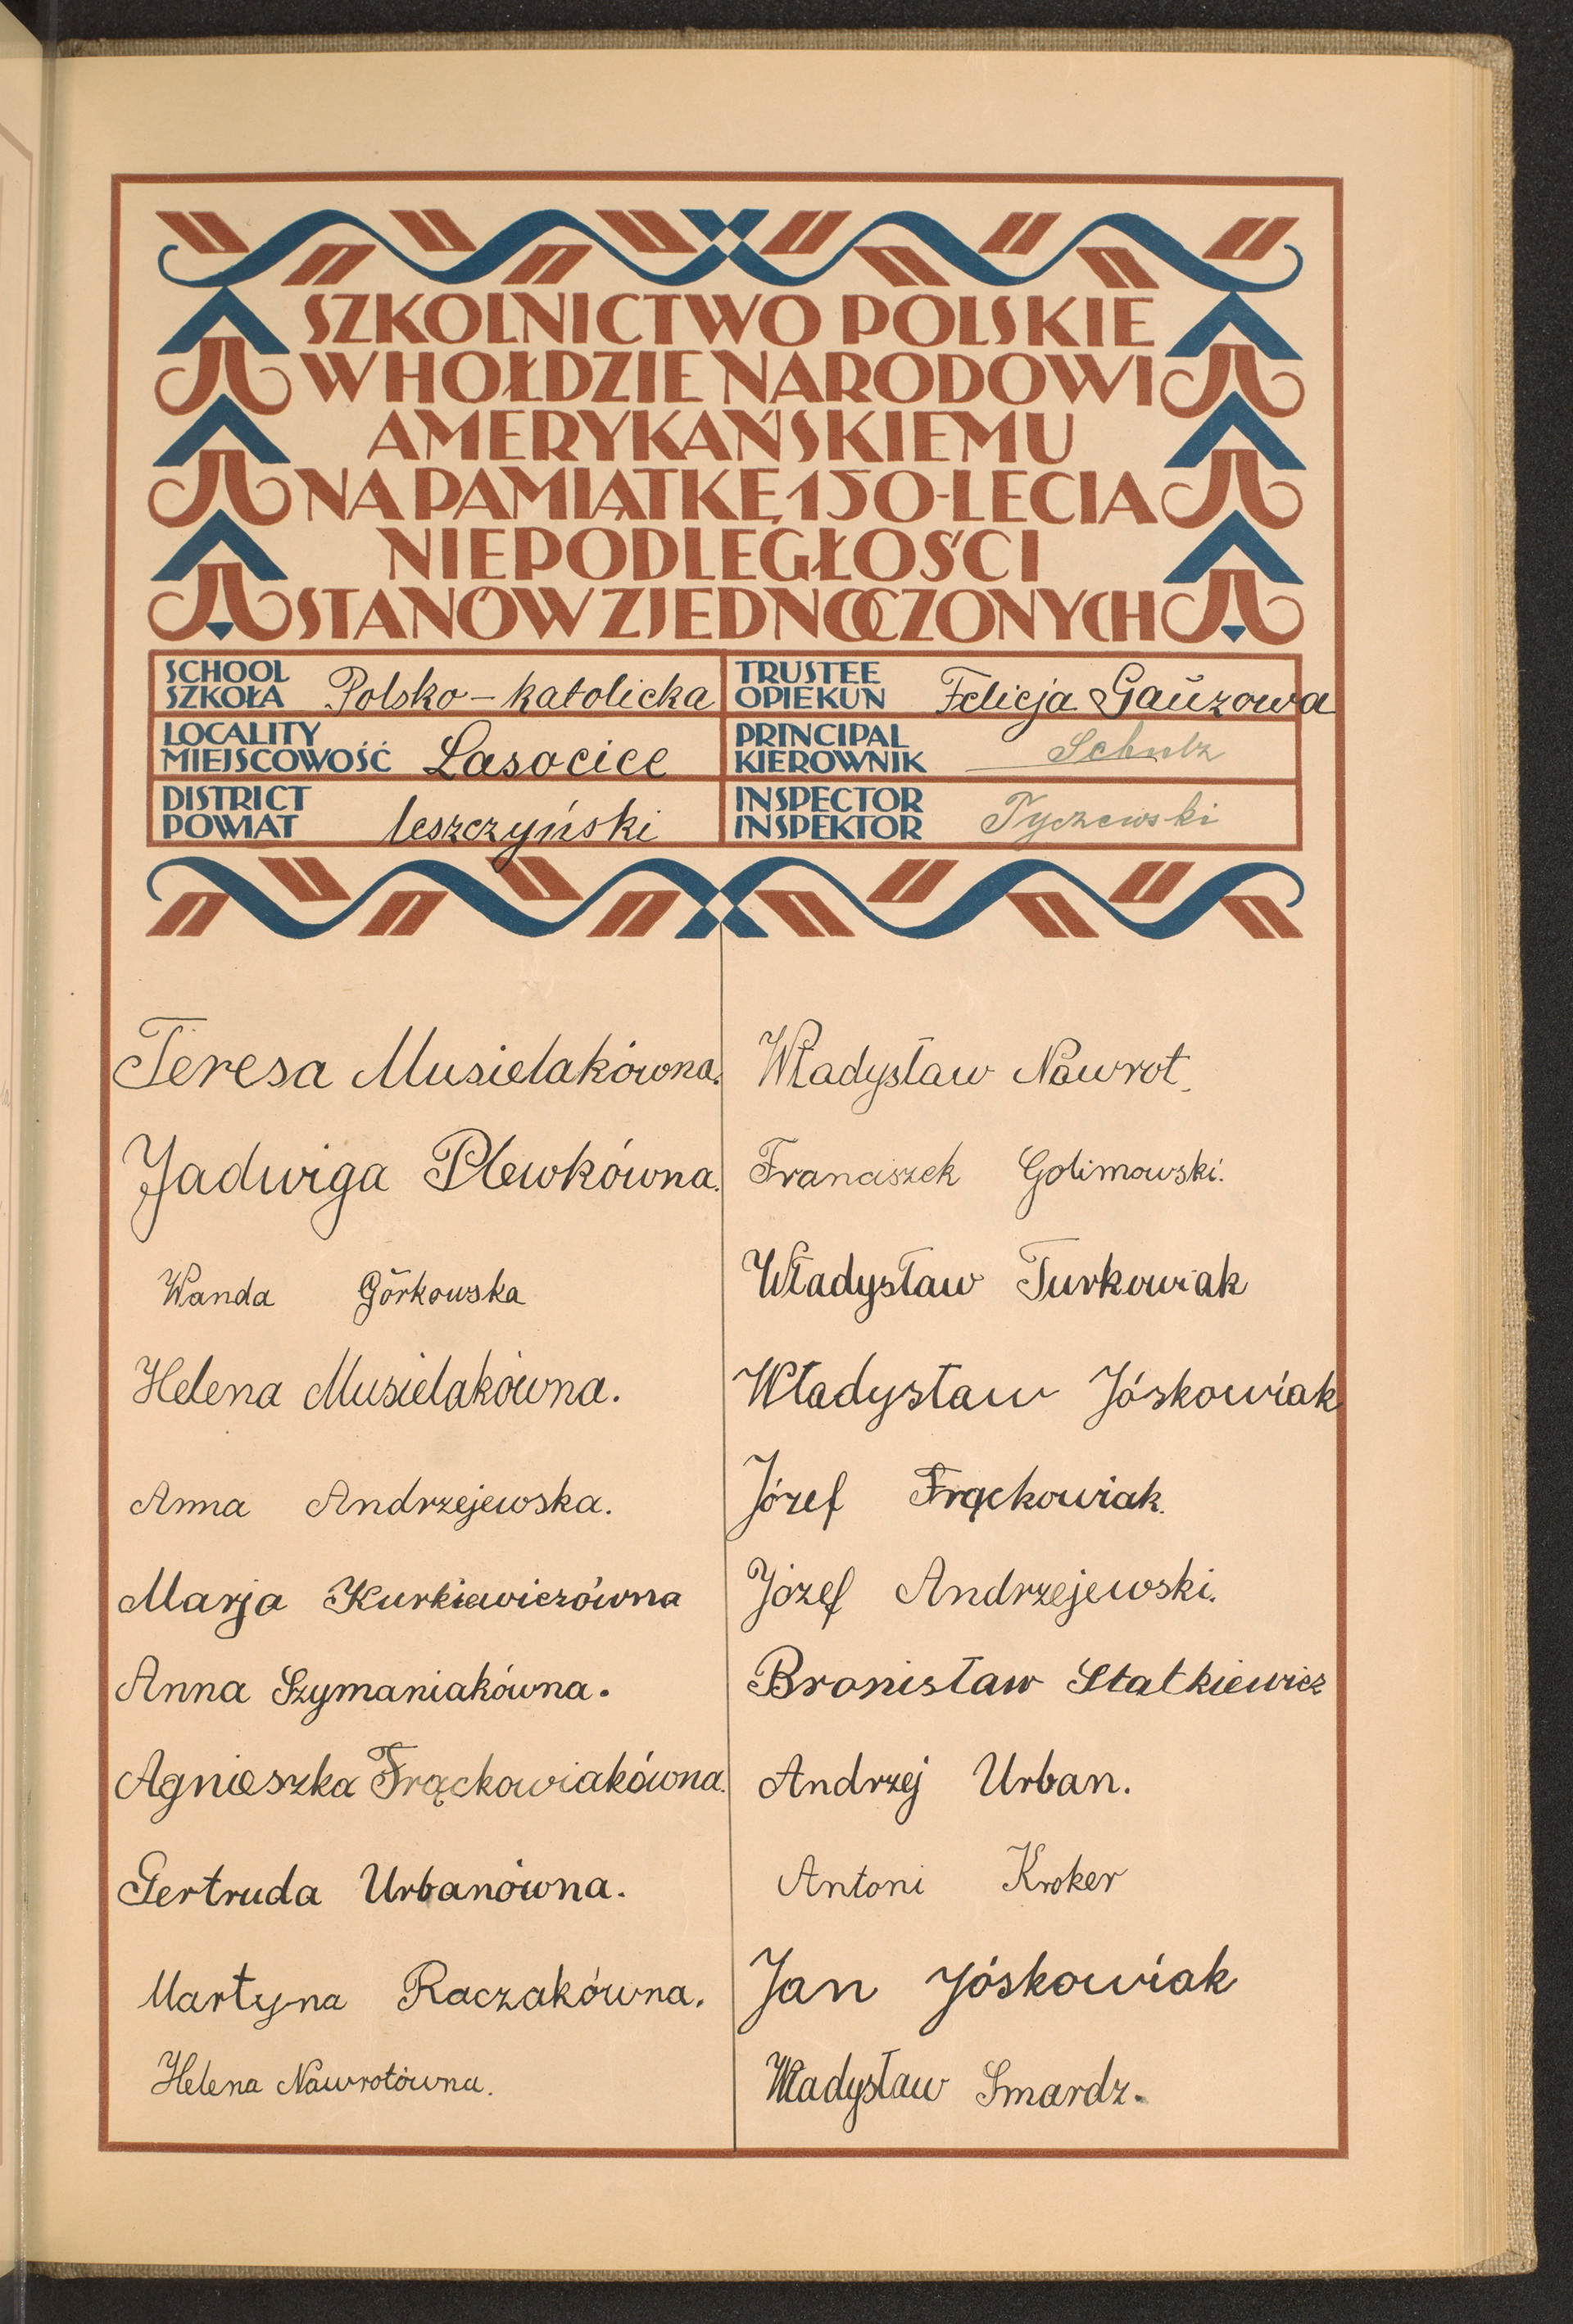 SZKOLNICTWO POLSKIE
W HOŁDZIE NARODOWI
AMERYKAŃSKIEMU
NA PAMIĄTKĘ 150-LECIA
NIEPODLEGŁOŚCI
STANÓW ZJEDNOCZONYCH
SCHOOL
SZKOŁA Polsko-katolicka
TRUSTEE
OPIEKUN Felicja Gauzowa
LOCALITY
MIEJSCOWOŚĆ Lasocice
PRINCIPAL
KIEROWNIK Schulz
DISTRICT
POWIAT leszczyński
INSPECTOR
INSPEKTOR Tyczewski
Teresa Musielakówna.
Jadwiga Plewkówna.
Wanda Górkowska
Helena Musielakówna.
Anna Andrzejewska.
Marja Kurkiewiczówna
Anna Szymaniakówna.
Agnieszka Frąckowiakówna.
Gertruda Urbanówna.
Martyna Raczakówna.
Helena Nawrotówna.
Władysław Nawrot.
Franciszek Golimowski.
Władysław Turkowiak
Władysław Jóskowiak
Józef Frąckowiak.
Józef Andrzejewski.
Bronisław Statkiewicz
Andrzej Urban.
Antoni Kroker
Jan Jóskowiak
Władysław Smardz.